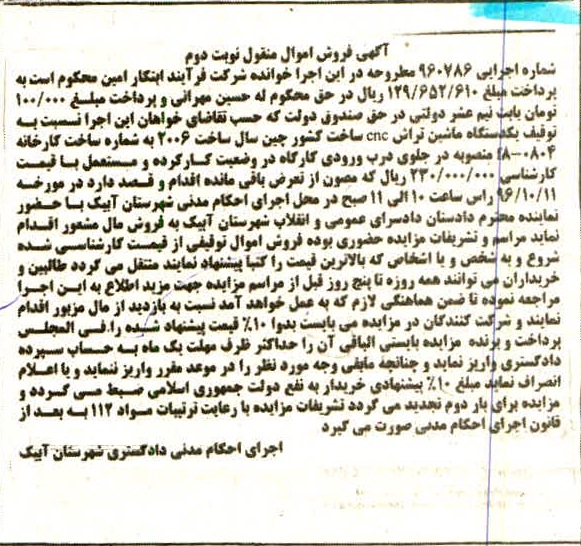 آگهی فروش اموال منقول نوبت دوم
شماره اجرایی ۹۶۰۷۸۶ مطروحه در این اجرا خوانده شرکت فرآیند ابتکار امین محکوم است به
پرداخت مبلغ ۱۲۹/۶۵۲/۶۱۰ ریال در حق محکوم له حسین مهرانی و پرداخت مبلسغ ۱۰۰/۰۰۰
تومان بابت نیم عشر دولتی در حق صندوق دولت که حسب تقاضای خواهان این اجرا نسبت به
توقیف یکدستگاه ماشین تراش cnc ساخت کشور چین سال ساخت ۲۰۰۶ به شماره ساخت کارخانه
۸۰-۰۸۰۴ منصوبه در جلوی درب ورودی کارگاه در وضعیت کارکرده و مستعمل با قیمت
کارشناسی ۲۳۰/۰۰۰/۰۰۰ ریال که مصون از تعرض باقی مانده اقدام و قصد دارد در مورخه
۹۶/۱۰/۱۱ راس ساعت ۱۰ الی ۱۱ صبح در محل اجرای احکام مدنی شهرستان آبیک با حضور
نماینده محترم دادستان دادسرای عمومی و انقلاب شهرستان آبیک به فروش مال مشعور اقدام
نماید مراسم و تشریفات مزایده حضوری بوده فروش اموال توقیفی از قیمت کارشناسی شده
شروع و به شخص و یا اشخاص که بالاترین قیمت را کتبا پیشنهاد نمایند منتقل می گردد طالبین و
خریداران می توانند همه روزه تا پنج روز قبل از مراسم مزایده جهت مزید اطلاع به این اجرا
مراجعه نموده تا ضمن هماهنگی لازم که به عمل خواهد آمد نسبت به بازدید از مال مزبور اقدام
نمایند و شرکت کنندگان در مزایده می بایست بدوا ۱۰% قیمت پیشنهاد شده را فی المجلس
پرداخت و برنده مزایده بایستی الباقی آن را حداکثر ظرف مهلت یک ماه به حساب سپرده
دادگستری واریز نماید و چنانچه مابقی وجه مورد نظر را در موعد مقرر واریز ننماید و یا اعلام
انصراف نماید مبلغ ۱۰% پیشنهادی خریدار به نفع دولت جمهوری اسلامی ضبط می گردد و
مزایده برای بار دوم تجدید می گردد تشریفات مزایده با رعایت ترتیبات مواد ۱۱۲ به بعد از
قانون اجرای احکام مدنی صورت می گیرد
اجرای احکام مدنی دادگستری شهرستان آبیک